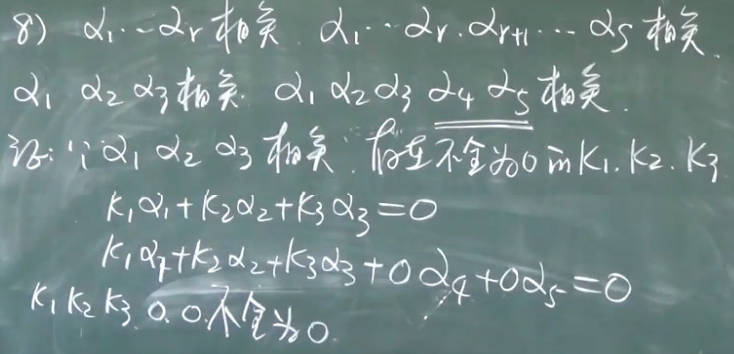 8) α₁…αᵣ相关. α₁…αᵣ.αᵣ₊₁…αs相关.
α₁ α₂ α₃相关. α₁ α₂ α₃ α₄ α₅相关.
证:∵α₁ α₂ α₃相关.存在不全为0的K₁.K₂.K₃
K₁α₁+K₂α₂+K₃α₃=0
K₁α₁+K₂α₂+K₃α₃+0α₄+0α₅=0
K₁K₂K₃.0.0.不全为0.